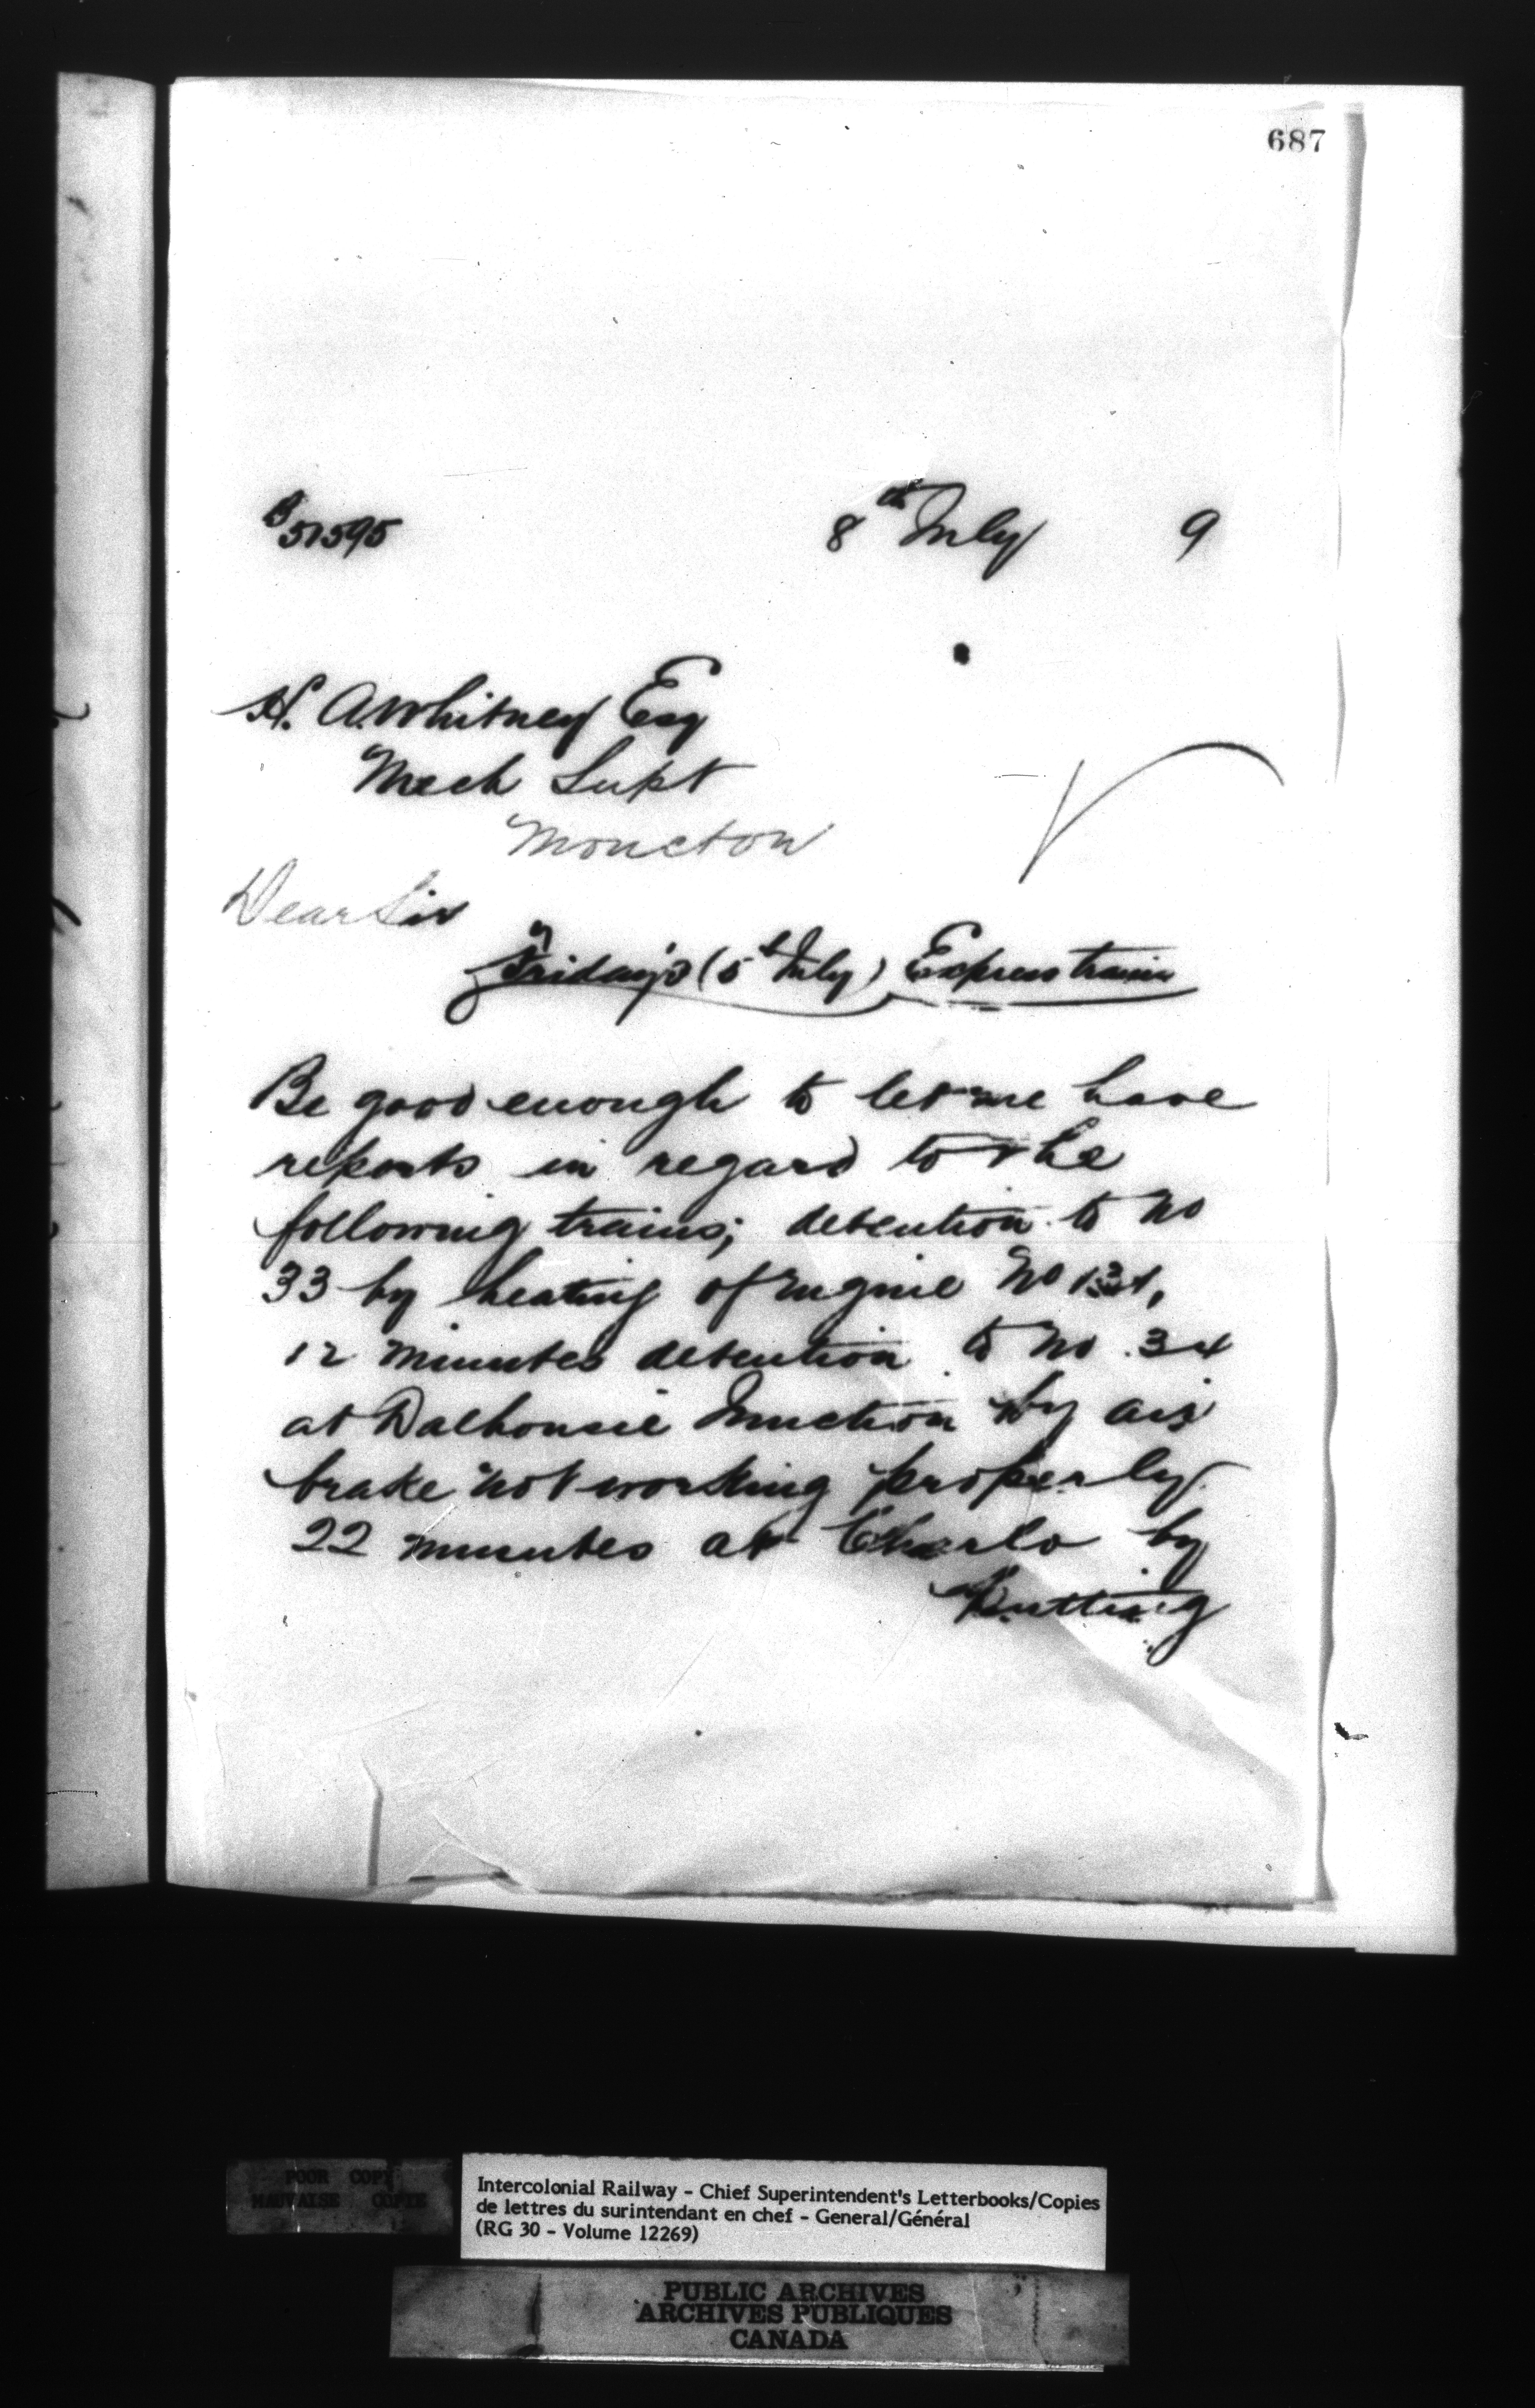 687
B 51595
8th July 9
H. A. Whitney Esq
Mech Supt
Moncton
Dear Sir
Friday's (5th July) Express trains
Be good enough to let me have
reports in regard to the
following trains; detention to No
33 by heating of engine No
12 minutes detention to No. 34
at Dalhousie Junction by air
brake not working properly.
22 minutes at Charlo by
Putting
POUR COPIE
MAUVAISE COPIE
Intercolonial Railway - Chief Superintendent's Letterbooks/Copies
de lettres du surintendant en chef - General/Général
(RG 30 - Volume 12269)
PUBLIC ARCHIVES
ARCHIVES PUBLIQUES
CANADA